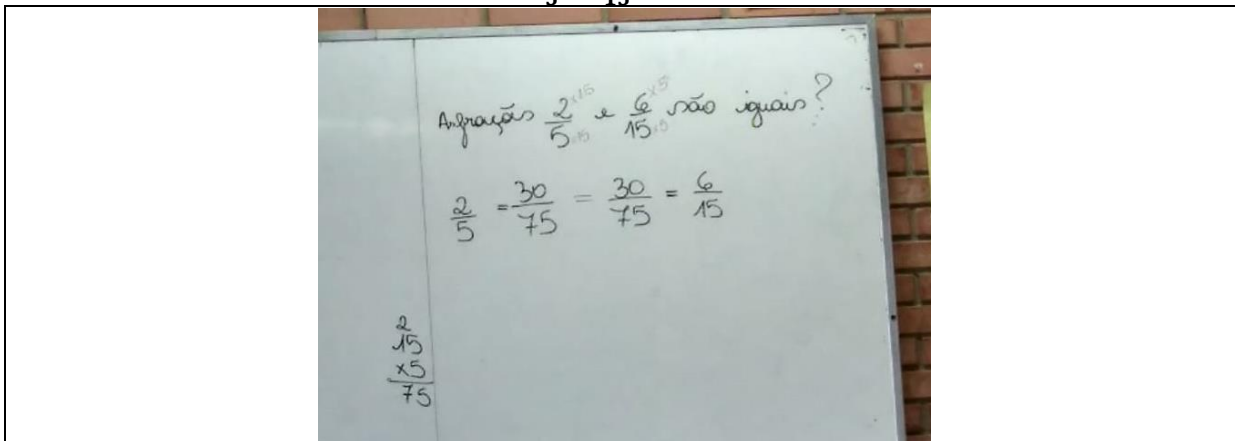 As frações 2/5 ×15 ×15 e 6/15 ×5 ×5 são iguais?
2/5 = 30/75 = 30/75 = 6/15
2
15
×5
75